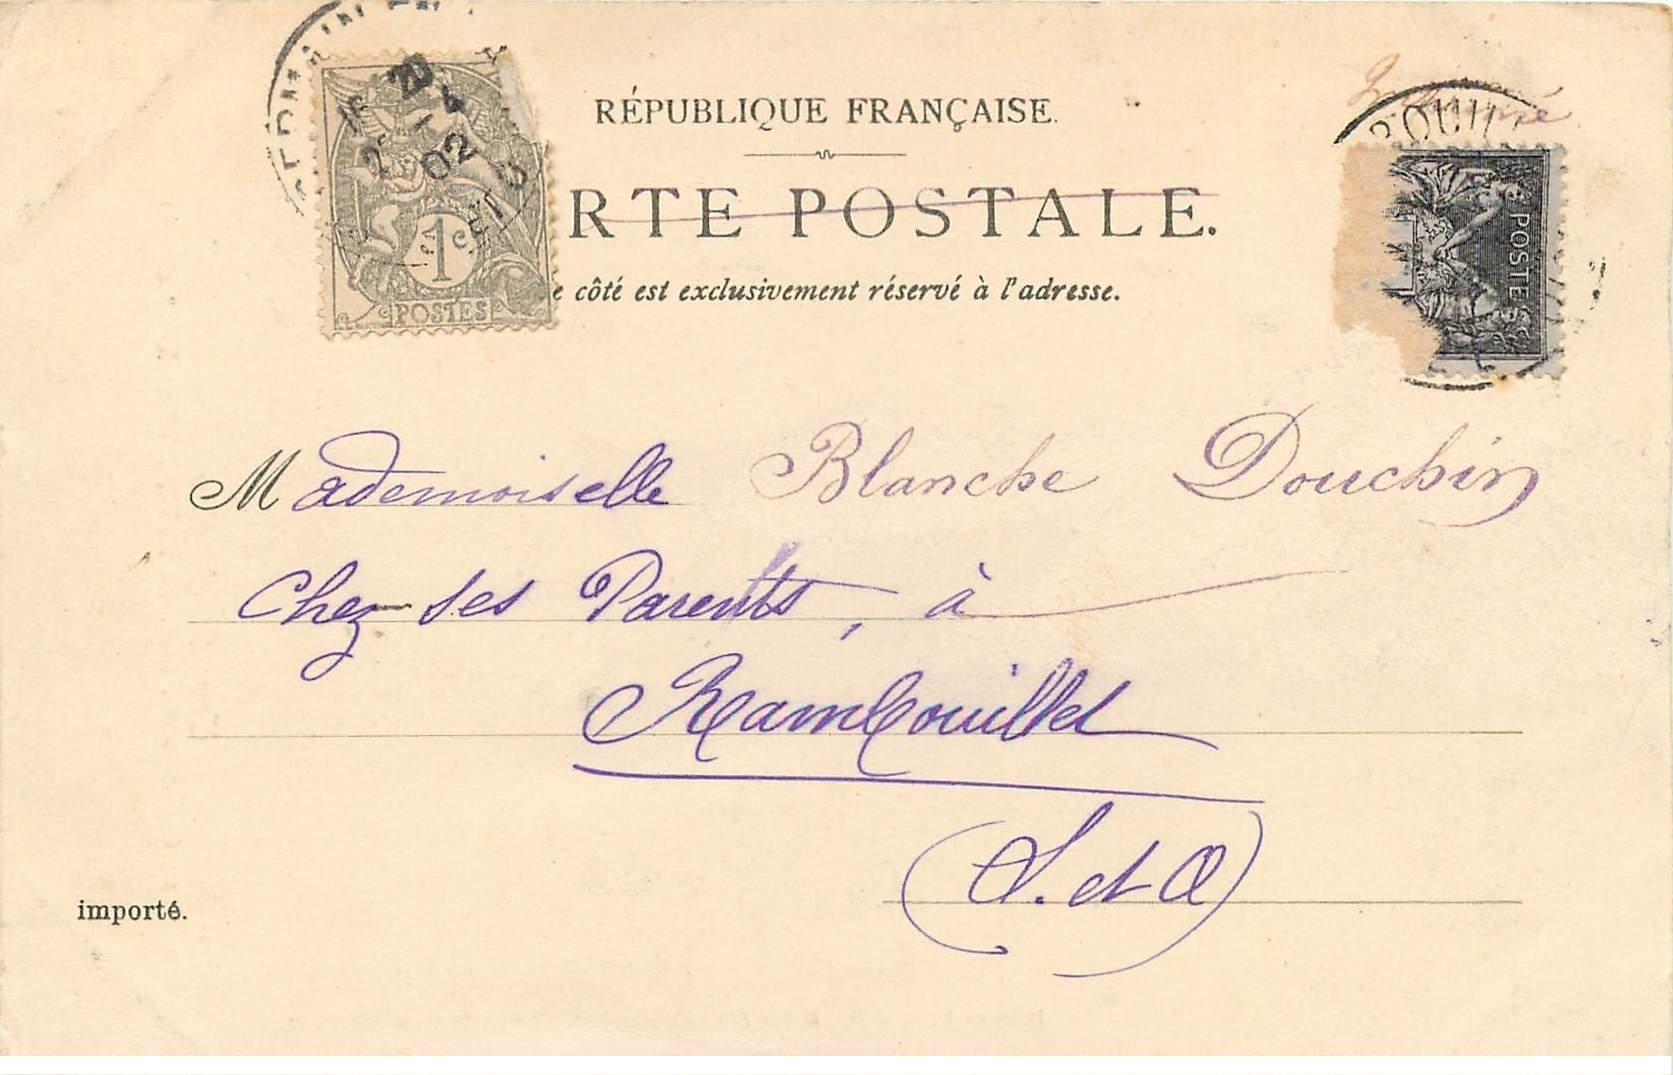 RÉPUBLIQUE FRANÇAISE.
RTE POSTALE.
e côté est exclusivement réservé à l'adresse.
1c
POSTES
20
02
ROUILL
POSTE
Mademoiselle Blanche Douchin
Chez ses Parents, à
Rambouillet
(S. et O)
importé.